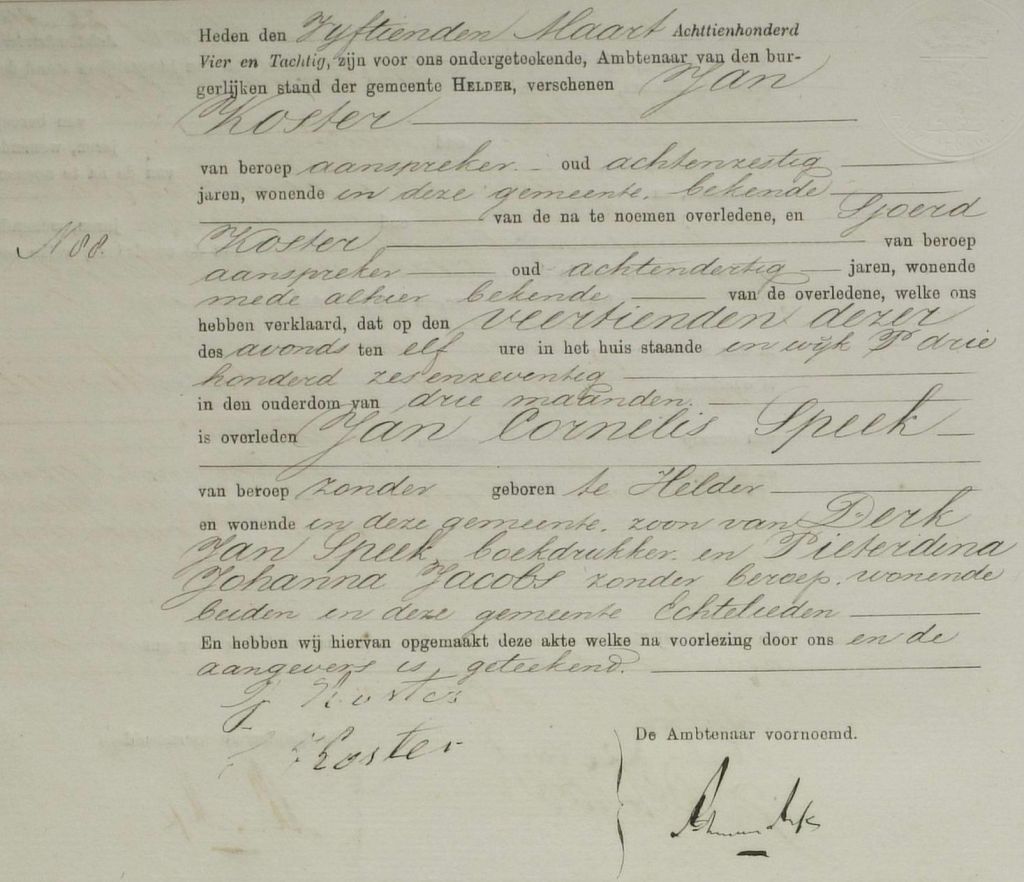 Heden den Vyftienden Maart Achttienhonderd
Vier en Tachtig, zijn voor ons ondergeteekende, Ambtenaar van den bur-
gerlijken stand der gemeente HELDER, verschenen Jan
Koster
van beroep aanspreker oud achtenzestig
jaren, wonende in deze gemeente, bekende
van de na te noemen overledene, en Sjoerd
N 88. Koster van beroep
aanspreker oud achtendertig jaren, wonende
mede alhier bekende van de overledene, welke ons
hebben verklaard, dat op den veertienden dezer
des avonds ten elf ure in het huis staande in wijk P drie
honderd zesenzeventig
in den ouderdom van drie maanden.
is overleden Jan Cornelis Speek
van beroep zonder geboren te Helder
en wonende in deze gemeente, zoon van Derk
Jan Speek, boekdrukker en Pieterdina
Johanna Jacobs zonder beroep, wonende
beiden in deze gemeente Echtelieden
En hebben wij hiervan opgemaakt deze akte welke na voorlezing door ons en de
aangevers is, geteekend.
J Koster
Koster
De Ambtenaar voornoemd.